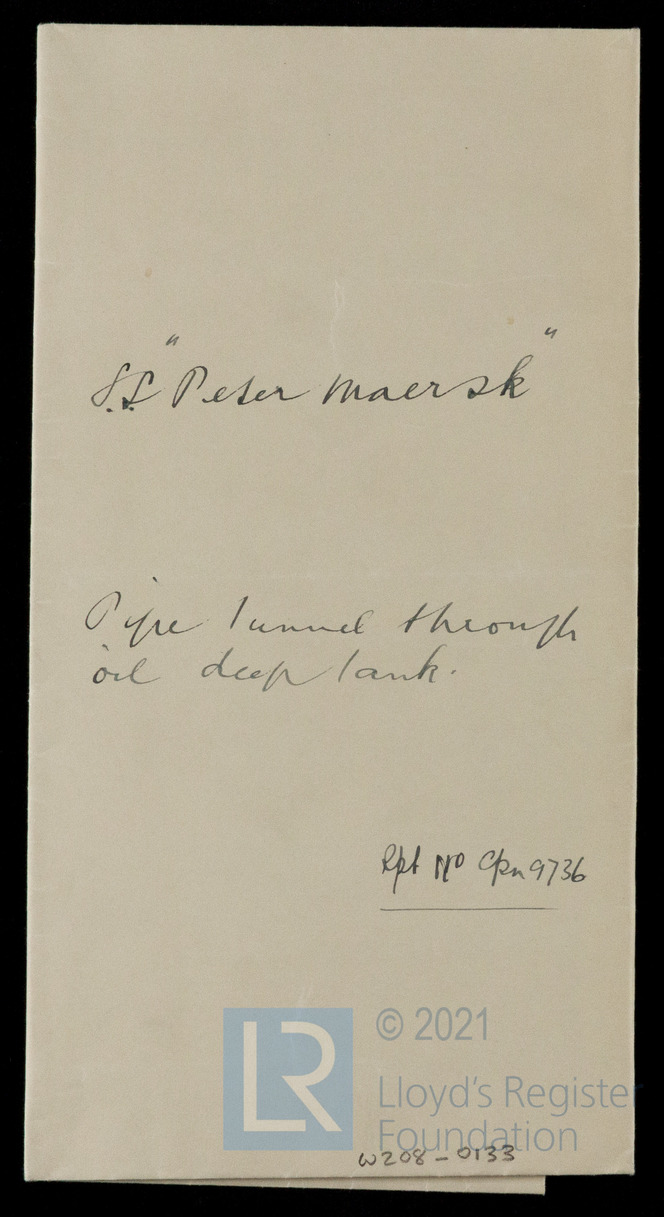 S.S. "Peter Maersk"
Pipe tunnel through
oil deep tank.
Rpt No Cpn 9736
LR
© 2021
Lloyd's Register
Foundation
W208-0133